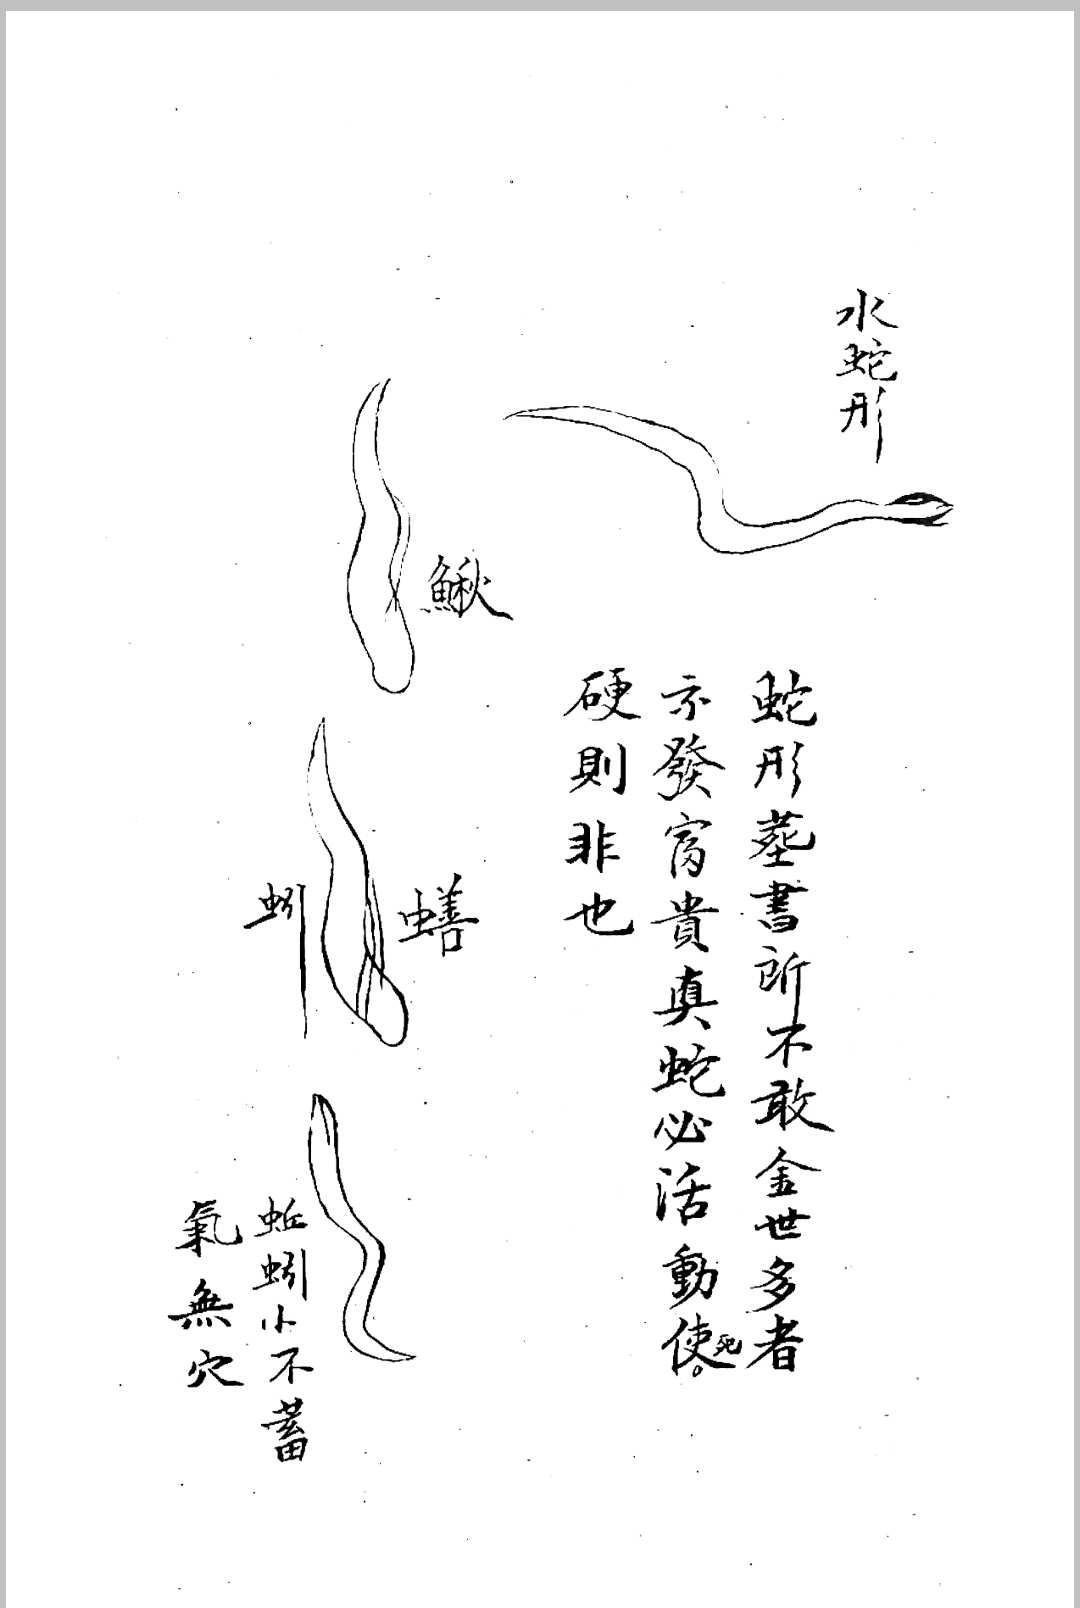 水蛇形
蛇形塟書所不敢金世多者
示發富貴真蛇必活動使死
硬則非也
鰍
蟮
蚓
蚯蚓小不蓄
氣無穴